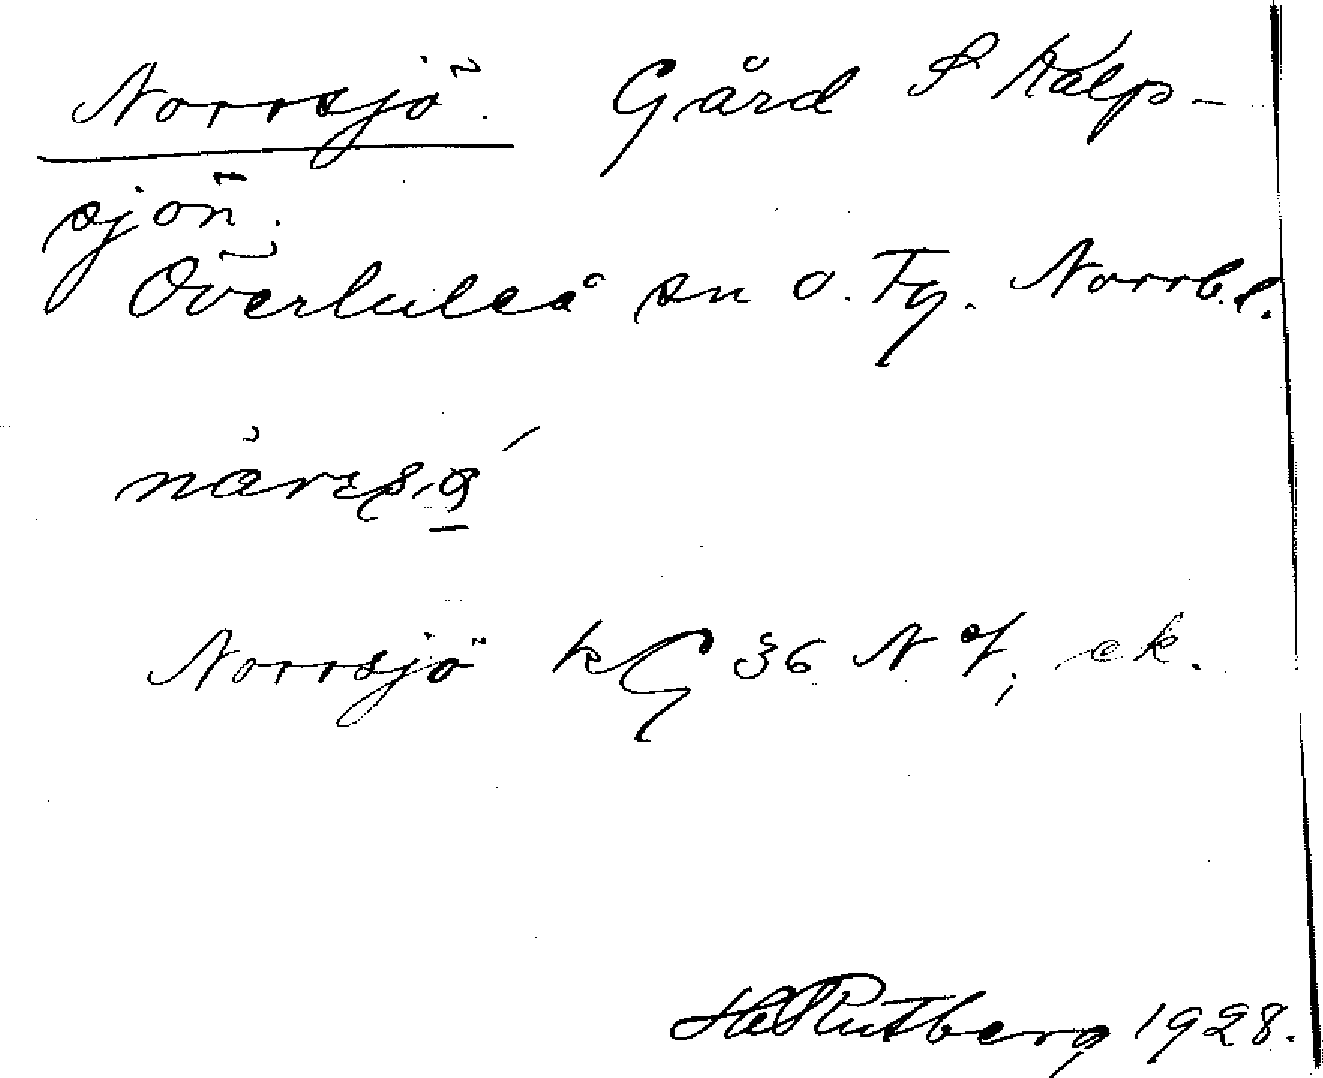 Norrsjö. Gård S Kälp-
sjön.
Överluleå sn o. Fg. Norrb.l.
Norrsjö kG 36 N of, ek.
H Rutberg 1928.